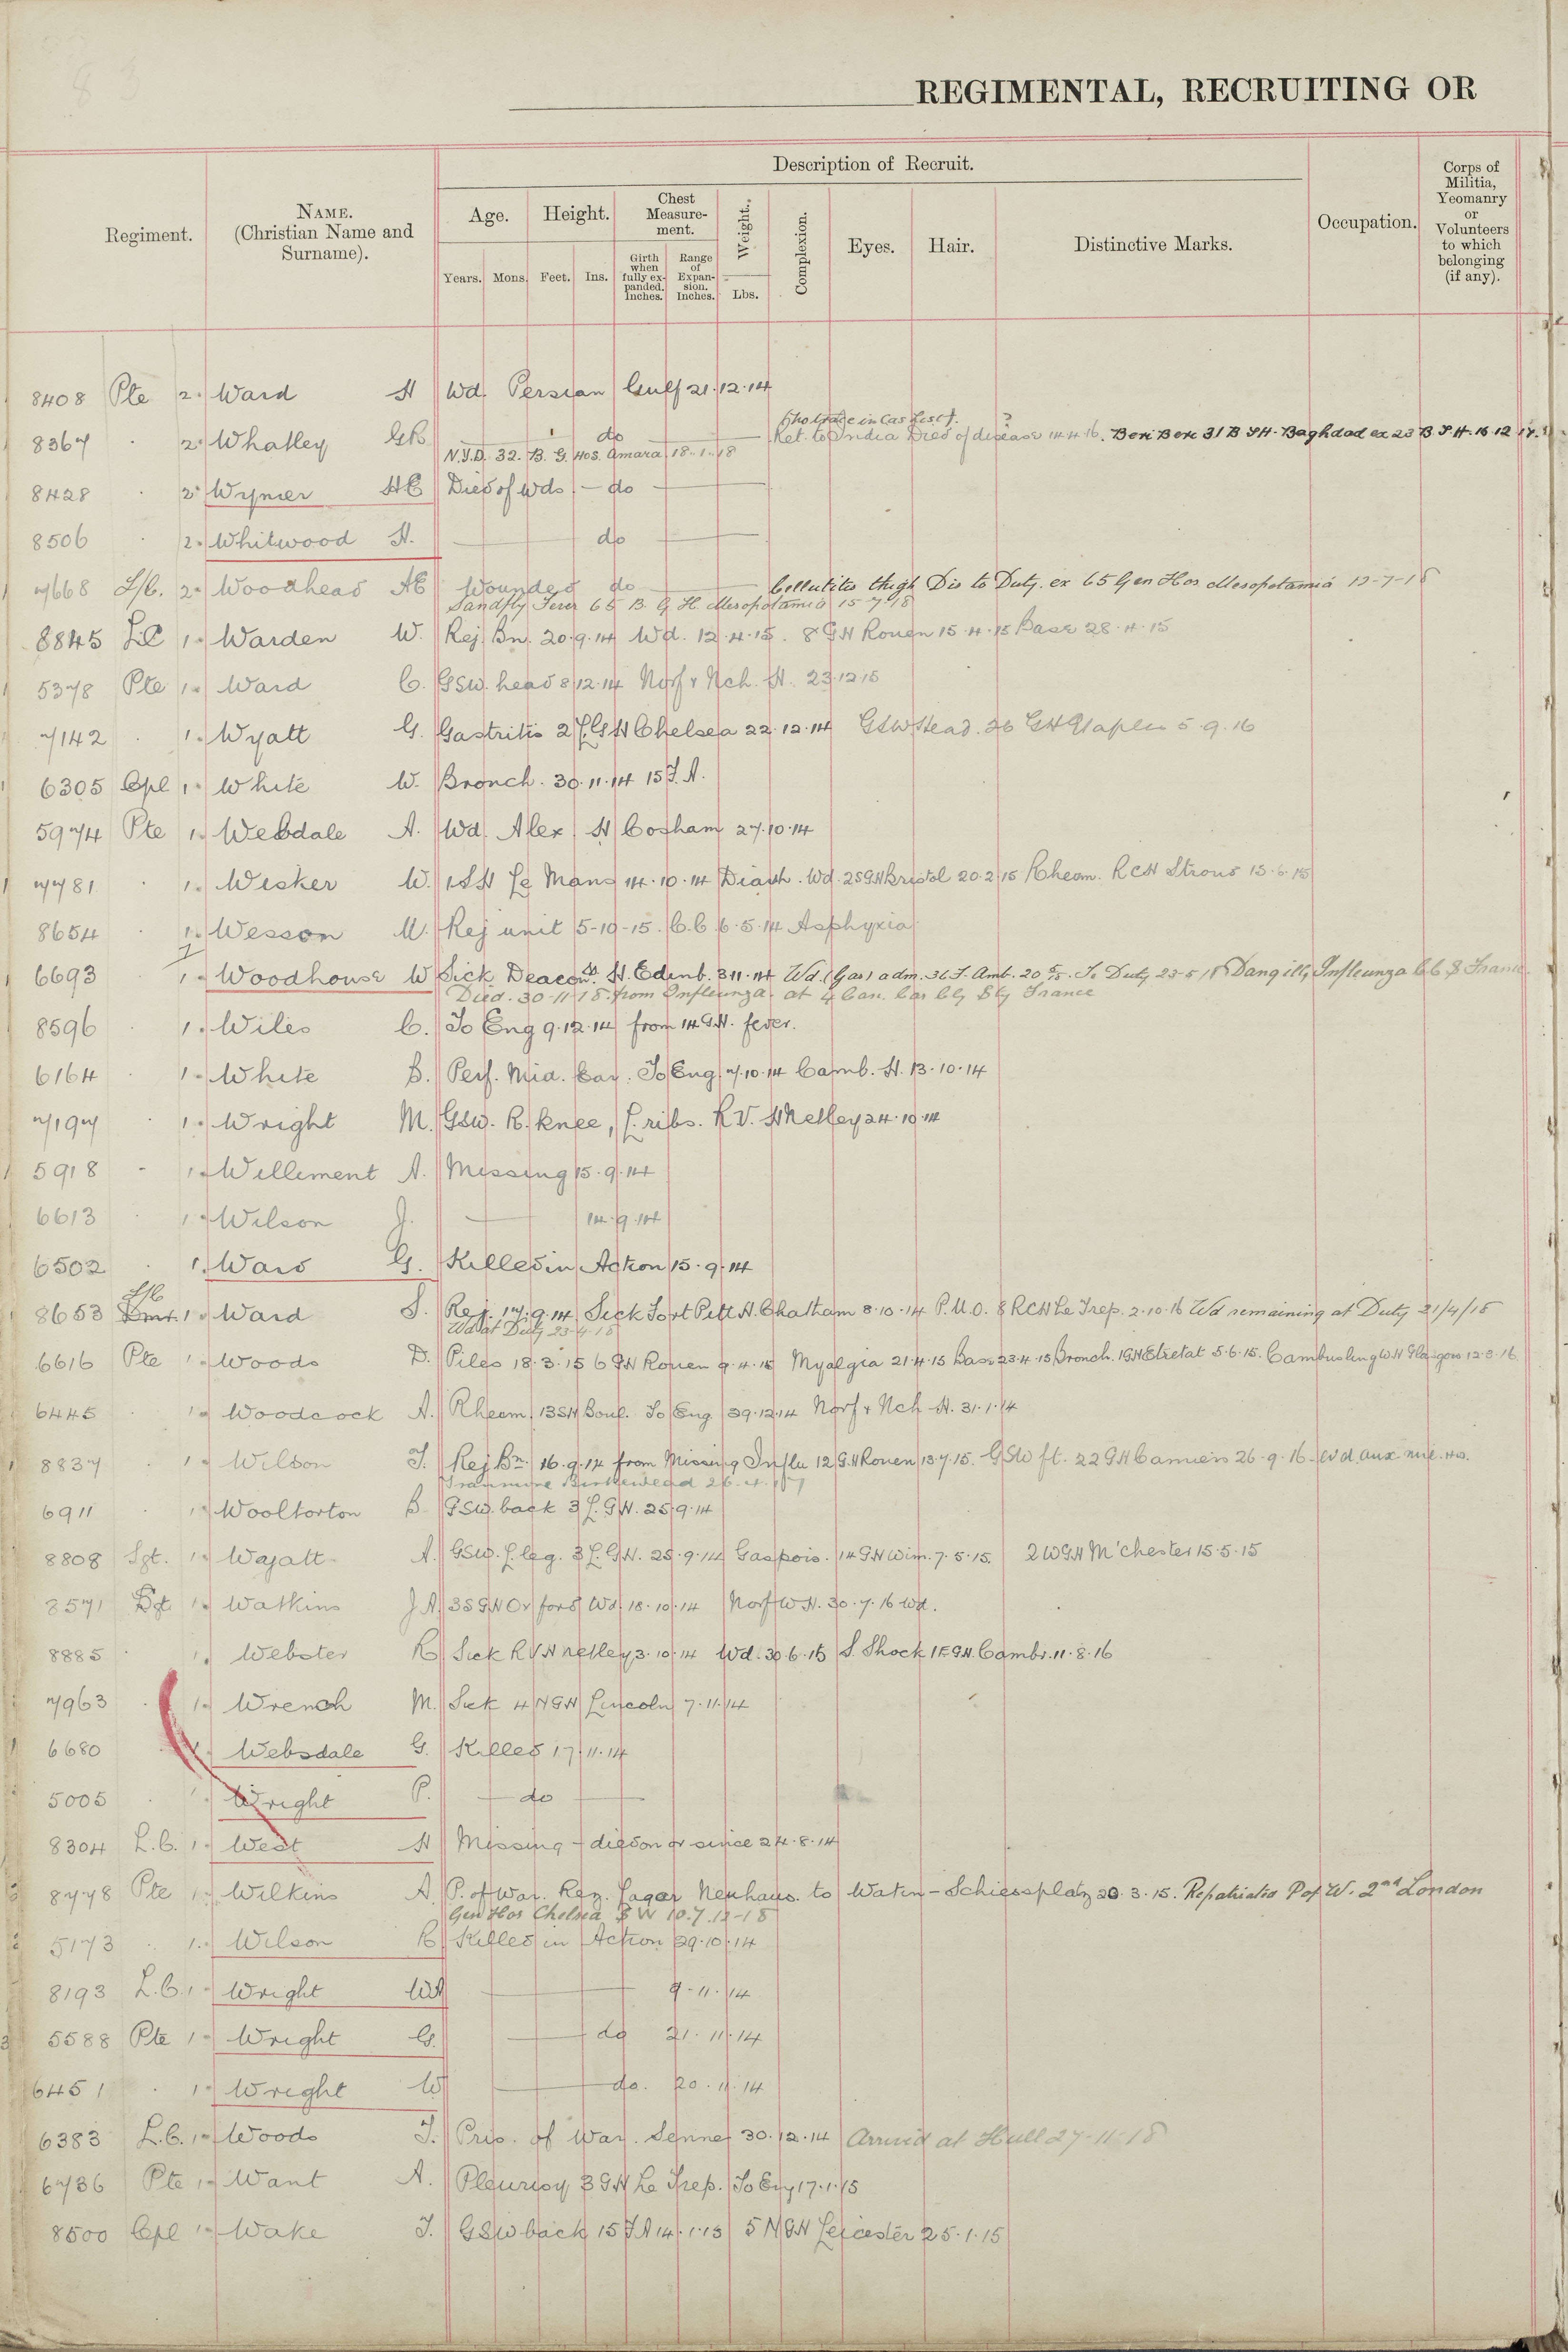 REGIMENTAL, RECRUITING OR
Regiment.
NAME.
(Christian Name and
Surname).
Description of Recruit.
Age.
Height.
Chest
Measure-
ment.
Weight.
Complexion.
Eyes.
Hair.
Distinctive Marks.
Occupation.
Corps of
Militia,
Yeomanry
or
Volunteers
to which
belonging
(if any).
Years.
Mons.
Feet.
Ins.
Girth
when
fully ex-
panded.
Inches.
Range
of
Expan-
sion.
Inches.
Lbs.
8408 Pte 2. Ward H Wd. Persian Gulf 21.12.14
(No trace in Cas List). ?
8367 . 2. Whalley GR do Ret. to India Died of disease 14.4.16. Beri Beri 31 B.S.H. Baghdad ex 23 B.S.H. 16.12.17.
N.Y.D. 32. B. G. Hos. Amara 18.1.18
8428 . 2. Wymer HE Died of Wds - do
8506 . 2. Whitwood H. do
7668 L/C. 2. Woodhead AE Wounded do Cellulitis thigh Dis to Duty. ex 65 Gen Hos Mesopotamia 13-7-18
Sandfly Fever 65 B. G. H. Mesopotamia 15.7.18
8845 LC 1. Warden W. Rej. Bn. 20.9.14 Wd. 12.4.15. 8 GH Rouen 15.4.15 Base 28.4.15
5378 Pte 1. Ward C. GSW. head 8.12.14 Norf & Nch. H. 23.12.15
7142 . 1. Wyatt G. Gastritis 2 L.G.H Chelsea 22.12.14 GSW Head. 26 GH Etaples 5.9.16
6305 Cpl 1. White W. Bronch. 30.11.14 15 F.A.
5974 Pte 1. Websdale A. Wd. Alex H Cosham 27.10.14
7781 . 1. Wesker W. 1 SH Le Mans 14.10.14 Diarh. Wd. 2SGH Bristol 20.2.15 Rheum. RCH Stroud 13.6.15
8654 . 1. Wesson M. Rej unit 5-10-15. C.C. 6.5.14 Asphyxia
6693 1. Woodhouse W Sick Deacon. H. Edinb. 3.11.14 Wd. (Gas) adm. 36 F. Amb. 20 To Duty 23.5.18 Dang. illy Infleunza
Died. 30-11-18. from Infleunza. at 4 Can. Cas Clg Stg France
8596 . 1. Wiles C. To Eng 9.12.14 from 14 G.H. fever.
6164 . 1. White B. Perf. Mid. Ear. To Eng. 7.10.14 Camb. H. 13.10.14
7197 . 1. Wright M. GSW. R. knee, L. ribs. R.V. H Netley 24.10.14
5918 - 1. Willement A. Missing 15.9.14
6613 . 1. Wilson J. 14.9.14
6502 . 1. Ward G. Killed in Action 15.9.14
L/C
8653 Dmr. 1. Ward S. Rej. 17.9.14 Sick Fort Pitt H. Chatham 8.10.14 P.U.O. 8 RCH Le Trep. 2.10.16 Wd remaining at Duty 21/4/18
Wd at Duty 23.4.18
6616 Pte 1. Woods D. Piles 18.3.15 6 GH Rouen 9.4.15 Myalgia 21.4.15 Base 23.4.15 Bronch. 1GH Etretat 5.6.15. Cambuslang W H Glasgow 12.3.16
6445 . 1. Woodcock A. Rheum. 13 SH Boul. To Eng 29.12.14 Norf & Nch H. 31.1.14
8837 . 1. Wilson T. Rej Bn 16.9.14 from Missing Influ 12 G.H Rouen 13.7.15. GSW ft. 22 GH Camiers 26.9.16. Wd aux mil. Hos.
Tranmere Birkenhead 26.4.17
6911 . 1. Wooltorton B. GSW. back 3 L.G.H. 25.9.14
8808 Sgt. 1. Wyatt A. GSW. L. leg. 3 L.G.H. 25.9.14 Gas pois. 14 GH Wim. 7.5.15. 2 WGH M'chester 15.5.15
8571 Sgt 1. Watkins J A. 3SGH Oxford Wd. 18.10.14 Norf W H. 30.7.16 Wd.
8885 . 1. Webster R Sick R V H Netley 3.10.14 Wd. 30.6.15 S. Shock 1 EGH. Cambs. 11.8.16
7963 . 1. Wrench M. Sick 4 NGH Lincoln 7.11.14
6680 1. Websdale G. Killed 17.11.14
5005 . Wright P. do
8304 L.C. 1. West H Missing - died on or since 24.8.14
8778 Pte 1. Wilkins A. P. of War. Rez. Lager Neuhaus. to Waten-Schiessplatz 20.3.15. Repatriated P of W. 2nd London
Gen Hos Chelsea S W 10.7.12-18
5173 . 1. Wilson R Killed in Action 29.10.14
8193 L.C. 1. Wright 9-11.14
5588 Pte 1. Wright G. do 21.11.14
6451 . 1. Wright W do. 20.11.14
6383 L.C. 1. Woods T. Pris. of War. Senne 30.12.14 Arrived at Hull 27-11-18
6736 Pte 1. Want A. Pleurisy 3 GH Le Trep. To Eng 17.1.15
8500 Cpl 1. Wake T. GSW back 15 F A 14.1.15 5 NGH Leicester 25.1.15